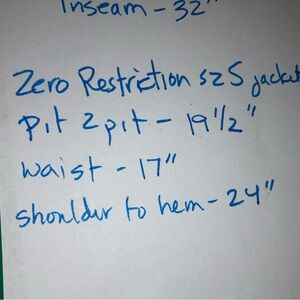 Inseam - 32"
Zero Restriction sz S jacket
Pit 2 pit - 19 1/2"
waist - 17"
shoulder to hem - 24"